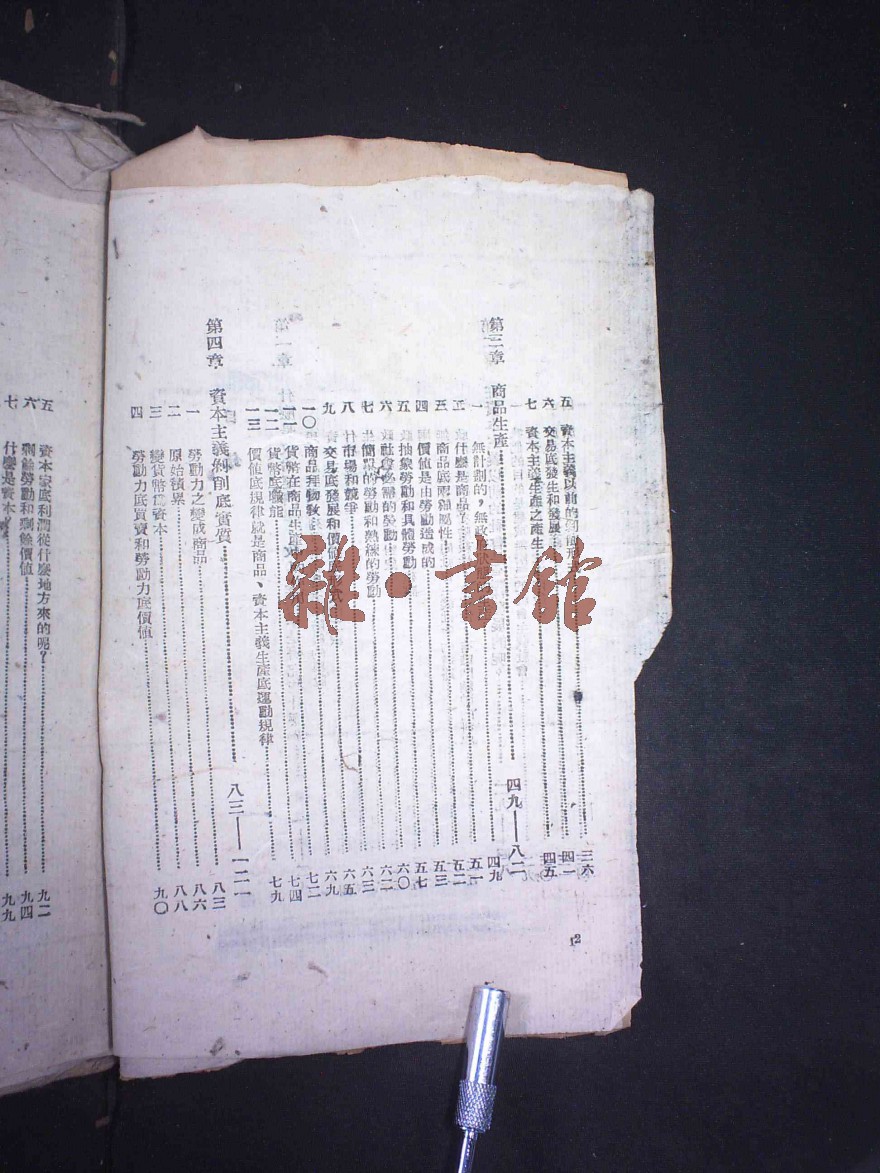 五 資本主義以前的剝削形 三六
六 交易底發生和發展 四一
七 資本主義生產之產生 四五
第三章 商品生產 四九——八二
一 無計劃的，無 四九
二 什麼是商品？ 五一
三 商品底兩種屬性 五二
四 價值是由勞動造成的 五三
五 抽象勞動和具體勞動 五七
六 社會必需的勞動 六〇
七 簡單的勞動和熟練的勞動 六二
八 市場和競爭 六三
九 交易底發展和價值 六五
一〇 商品拜物教 六九
一一 貨幣在商品生產 七二
一二 貨幣底職能 七四
一三 價值底規律就是商品、資本主義生產底運動規律 七九
第四章 資本主義剝削底實質 八三——一二一
一 勞動力之變成商品 八三
二 原始積累 八六
三 變貨幣爲資本 八八
四 勞動力底買賣和勞動力底價值 九〇
2
五 資本家底利潤從什麼地方來的呢？ 九二
六 剩餘勞動和剩餘價值 九四
七 什麼是資本？ 九九
雜·書館